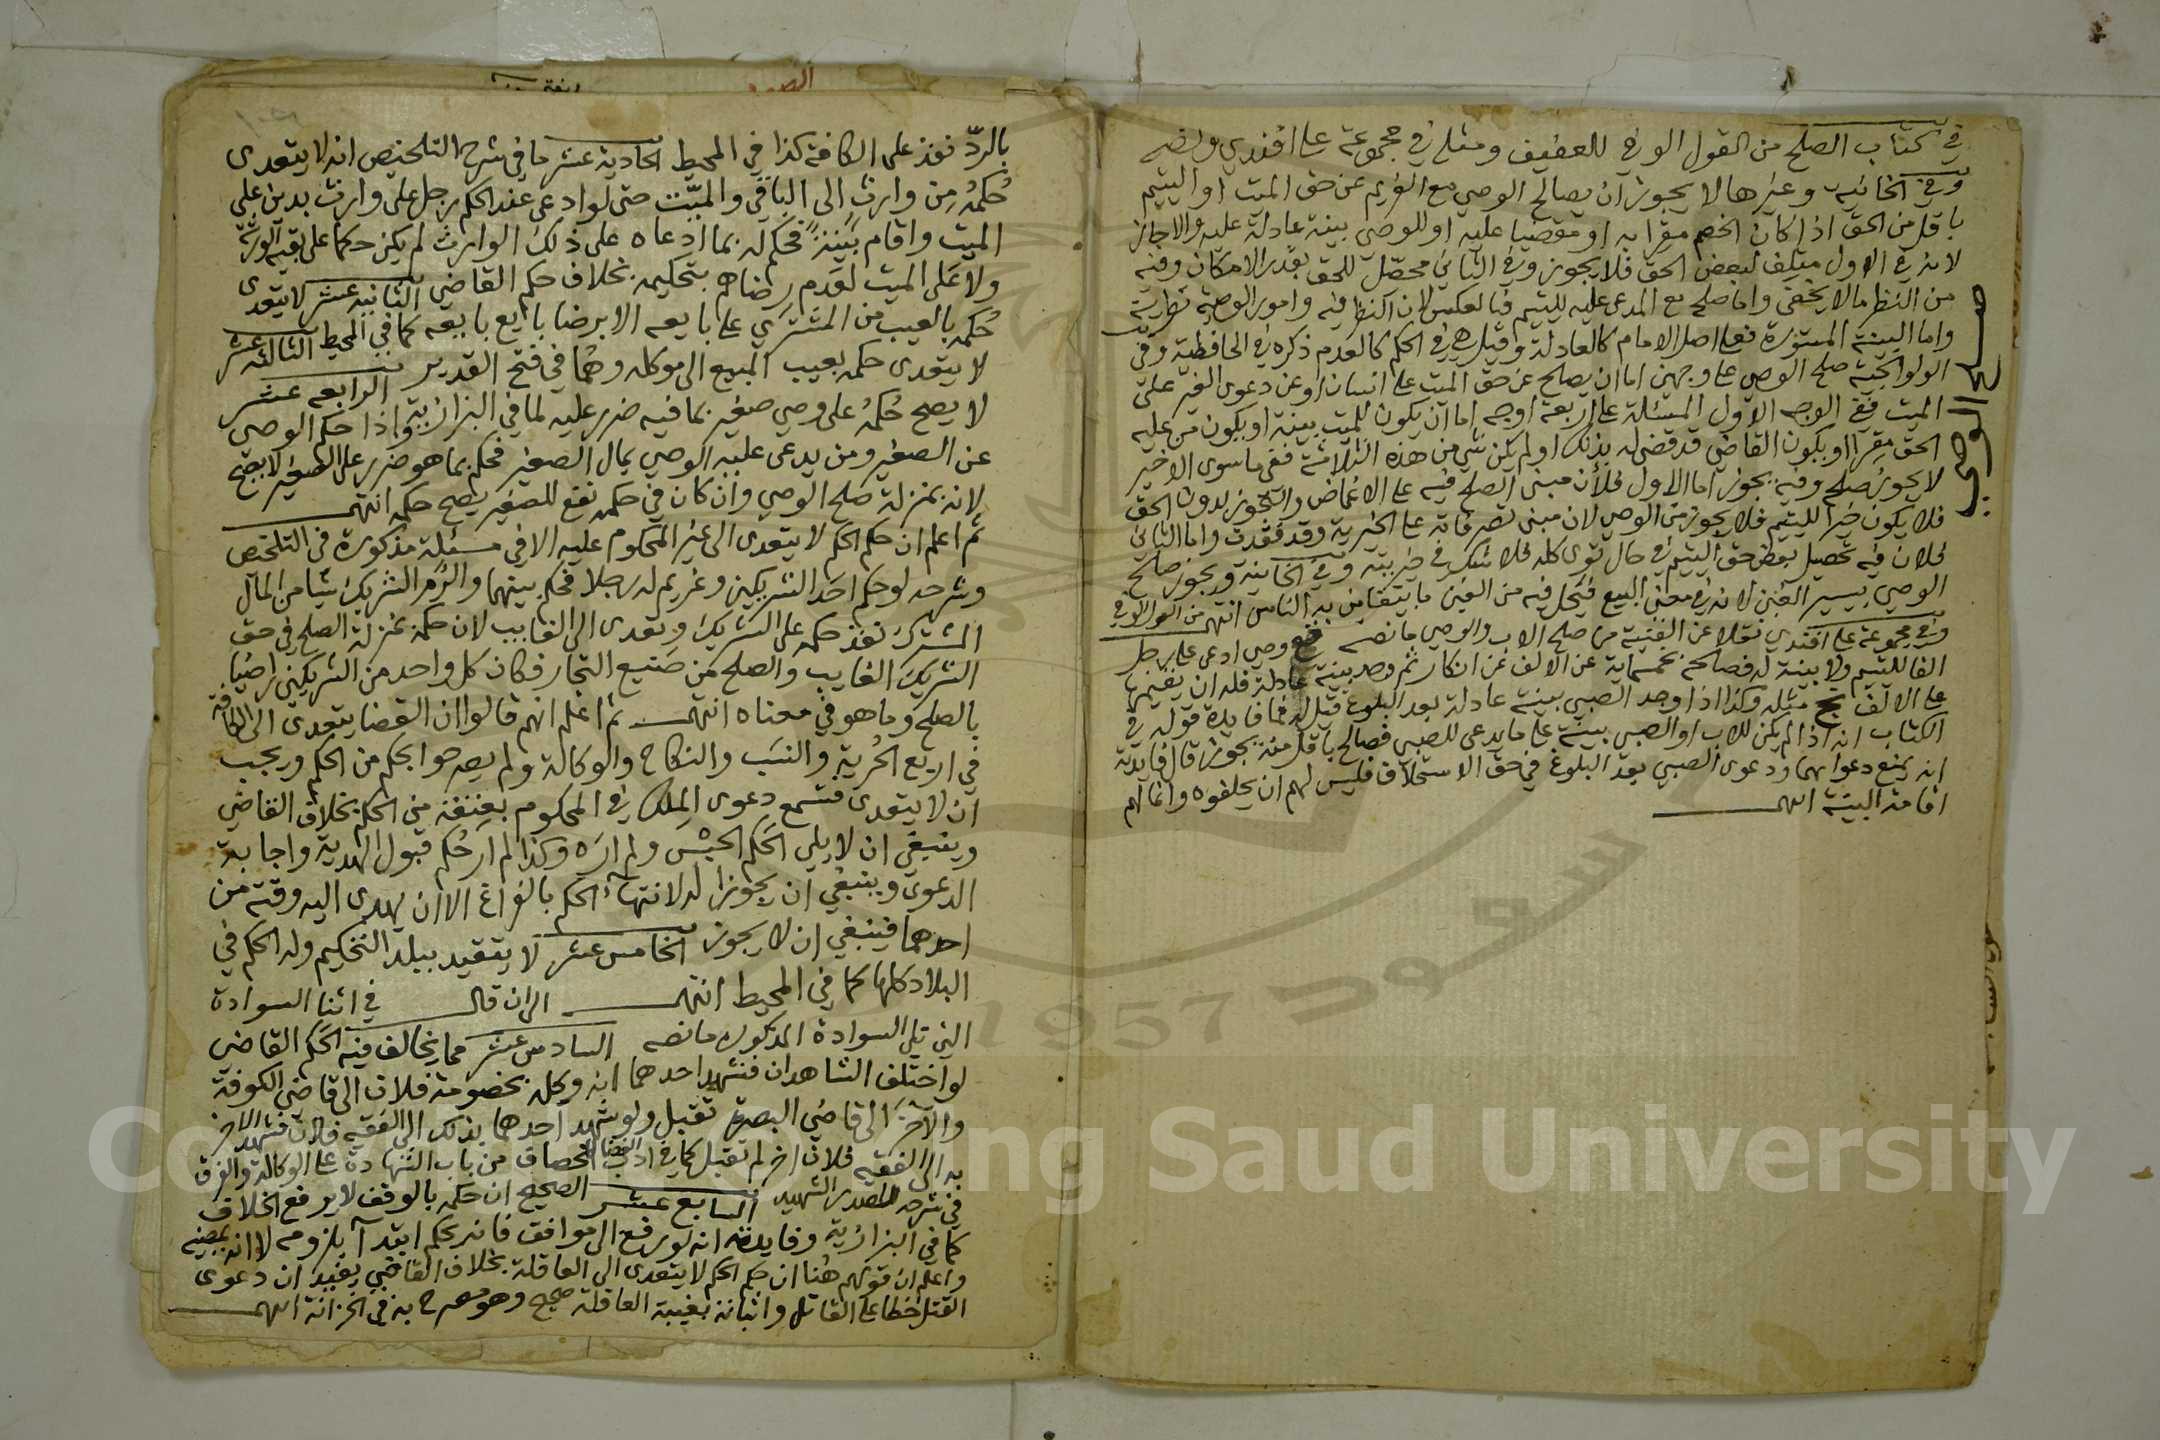 في كتاب الصلح من القول الوفي للعفيف ومثله في مجموعة علي افندي ونصه
وفي الخانية وغيرها لا يجوز ان يصالح الوصي مع الغريم عن حق الميت او اليتيم
باقل من الحق اذا كان الخصم مقرا به او مقضيا عليه او للوصي بينة عادلة عليه والا جاز
لانه في الاول متلف لبعض الحق فلا يجوز وفي الثاني محصّل للحق بقدر الامكان وفيه
من النظر ما لا يخفى واما صلحه مع المدعى عليه لليتيم فبالعكس لان النظر فيه وامور الوصي نظرية
واما البينة المستورة فعلى اصل الامام كالعادلة وقيل هي في الحكم كالعدم ذكره في الحافظية وفي
الولوالجية صلح الوصي على وجهين اما ان يصلح عن حق الميت على انسان او عن دعوى الغير على
الميت ففي الوجه الاول المسئلة على اربعة اوجه اما ان يكون للميت بينة او يكون من عليه
الحق مقرا او يكون القاضي قد قضى له بذلك او لم يكن شي من هذه الثلاثة ففي ما سوى الاخير
لا يجوز صلحه وفيه يجوز اما الاول فلأن مبنى الصلح فيه على الاغماض والتجوز بدون الحق
فلا يكون خيرا لليتيم فلا يجوز من الوصي لان مبنى تصرفاته على الخيرية وقد فقدت واما الثاني
فلان فيه تحصيل بعض حق اليتيم في حال توى كله فلا شك في خيريته وفي الخانية ويجوز صلح
الوصي بيسير الغبن لانه في معنى البيع فيتحمل فيه من الغبن ما يتغابن به الناس انتهى من القول الوفي
وفي مجموعة علي افندي نقلا عن القنية من صلح الاب والوصي ما نصه قع وصي ادعى على رجل
الفا لليتيم ولا بينة له فصالحه بخمسماية عن الالف عن انكار ثم وجد بينة عادلة فله ان يقيمها
على الالف بخ مثله وكذا اذا وجد الصبي بينة عادلة بعد البلوغ قيل له فما فايدة قوله في
الكتاب انه اذا لم يكن للاب او الصبي بينة على ما يدعى للصبي فصالح باقل منه يجوز قال فايدته
انه يمنع دعواهما ودعوى الصبي بعد البلوغ في حق الاستحلاف فليس لهم ان يحلفوه وانما لهم
اقامة البينة انتهى
صلح الوصي
بالردّ نفذ على الكافة كذا في المحيط الحادية عشر ما في شرح التلخيص انه لا يتعدى
حُكمهُ من وارث الى الباقي والميّت حتى لو ادعى عند الحكم رجل على وارث بدين على
الميت واقام بينة فحكم له بما ادعاه على ذلك الوارث لم يكن حكما على بقية الورثة
ولا على الميت لعدم رضاهم بتحكيمه بخلاف حكم القاضي الثانية عشر لا يتعدى
حُكمه بالعيب من المشتري على بايعه الا برضا بايع بايعه كما في المحيط الثالثة عشر
لا يتعدى حكمه بعيب المبيع الى موكله وهما في فتح القدير الرابعة عشر
لا يصح حُكمُه على وصي صغير بما فيه ضرر عليه لما في البزازية واذا حكم الوصي
عن الصغير ومن يدعى عليه الوصي بمال الصغير فحكم بما هو ضرر على الصغير لا يصح
لانه بمنزلة صلح الوصي وان كان في حكمه نفع للصغير يصح حكمه انتهى
ثم اعلم ان حكم الحكم لا يتعدى الى غير المحكوم عليه الا في مسئلة مذكورة في التلخيص
وشرحه لو حكم احد الشريكين وغريم له رجلا فحكم بينهما والزم الشريك شيا من المال
المشترك نفذ حكمه على الشريك وتعدى الى الغايب لان حكمه بمنزلة الصلح في حق
الشريك الغايب والصلح من صنيع التجار فكان كل واحد من الشريكين راضيا
بالصلح وما هو في معناه انتهى ثم اعلم انهم قالوا ان القضا يتعدى الى الكافة
في اربع الحُرية والنسَب والنكاح والوكالة ولم يصرحوا بحكم من الحكم ويجب
ان لا يتعدى فتسمع دعوى الملك في المحكوم بعتقه من الحكم بخلاف القاضي
وينبغي ان لا يلي الحكم الحبْس ولم اره وكذا لم ار حُكم قبول الهدية واجابة
الدعوى وينبغي ان يجوزا له لانتهاء الحكم بالفراغ الا ان يهدى اليه وقته من
احدهما فينبغي ان لا يجوز الخامس عشر لا يتقيد ببلد التحكيم وله الحكم في
البلاد كلها كما في المحيط انتهى الى ان قال في اثنا السوادة
التي تلي السوادة المذكورة ما نصه السادس عشر مما يخالف فيه الحكم القاضي
لو اختلف الشاهدان فشهد احدهما انه وكله بخصومة فلان الى قاضي الكوفة
والآخر الى قاضي البصرة تقبل ولو شهد احدهما بذلك الى الفقيه فلان فشهد الاخر
به الى الفقيه فلان اخر لم تقبل كما في ادب القضا للخصاف من باب الشهادة على الوكالة والفرق
في شرحه للصدر الشهيد السابع عشر الصحيح ان حكمه بالوقف لا يرفع الخلاف
كما في البزازية وفايدته انه لو رفع الى موافق فانه يحكم ابتدآ بلزومه لا انه يمضيه
واعلم ان قولهم هُنا ان حكم الحكم لا يتعدى الى العاقلة بخلاف القاضي يفيد ان دعوى
القتل خطا على القاتل واثباته بغيبة العاقلة صحيح وهو مصرح به في الخزانة انتهى
1957
Copy King Saud University